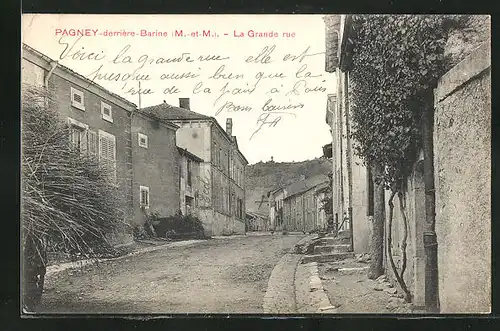 PAGNEY-derrière-Barine (M.-et-M.). - La Grande rue
Voici la grande rue elle est
presque aussi bien que la
rue de la paix à
Paris